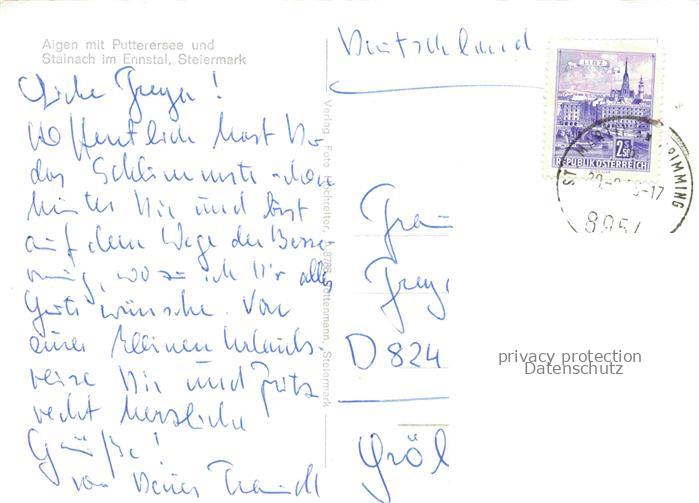 Aigen mit Putterersee und
Stainach im Ennstal, Steiermark
Liebe Freya!
Hoffentlich hast Du
das Schlimmste schon
hinter Dir und bist
auf dem Wege der Besse-
rung, wozu ich Dir alles
Gute wünsche. Von
einer kleinen Urlaubs-
reise Dir und Fritz
recht herzliche
Grüße!
von Deiner
Verlag Foto Hochreiter, Rottenmann, Steiermark
Deutschland
LINZ
2.50
REPUBLIK ÖSTERREICH
ST. MARTIN GRIMMING
-17
8954
Frau
Freya
D 824
Gröl
privacy protection
Datenschutz